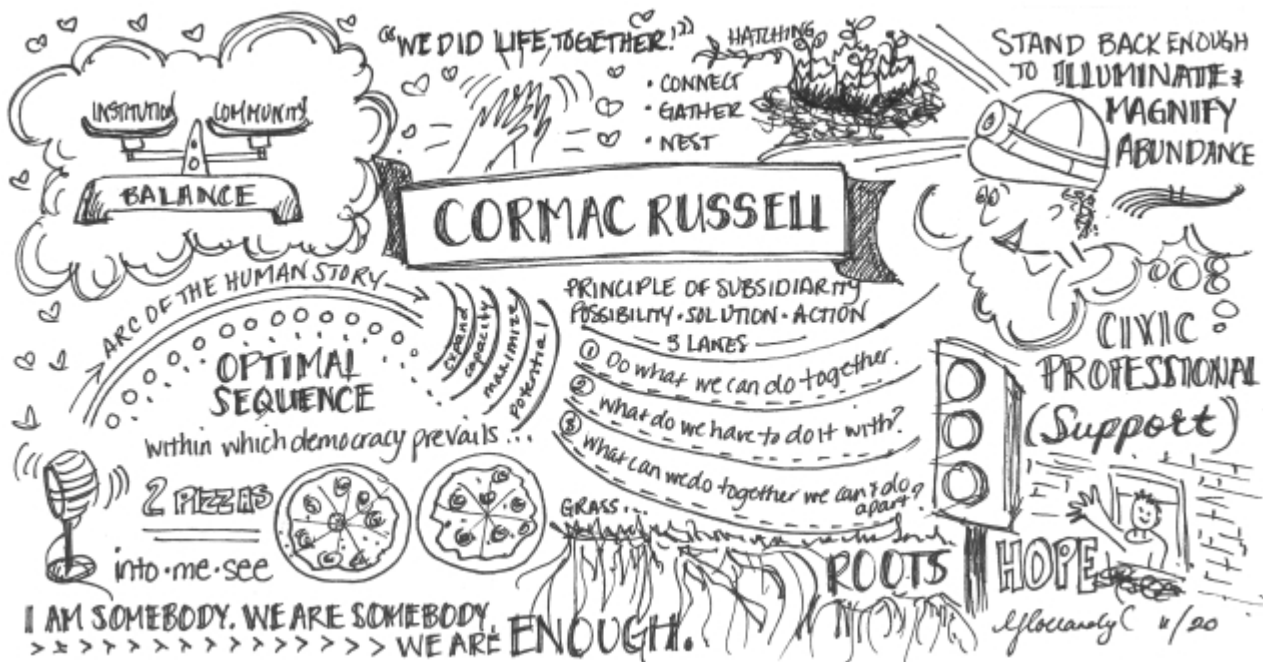 INSTITUTION
COMMUNITY
BALANCE
"WE DID LIFE TOGETHER!"
HATCHING
• CONNECT
• GATHER
• NEST
STAND BACK ENOUGH
TO ILLUMINATE &
MAGNIFY
ABUNDANCE
CORMAC RUSSELL
ARC OF THE HUMAN STORY
expand
capacity
maximize
potential
OPTIMAL
SEQUENCE
within which democracy prevails...
2 PIZZAS
into•me•see
PRINCIPLE OF SUBSIDIARITY
POSSIBILITY • SOLUTION • ACTION
3 LANES
① Do what we can do together.
② what do we have to do it with?
③ What can we do together we can't do
apart?
CIVIC
PROFESSIONAL
(Support)
GRASS...
ROOTS
HOPE
I AM SOMEBODY. WE ARE SOMEBODY.
> > > > > > > > > > > > > > WE ARE ENOUGH.
11/20